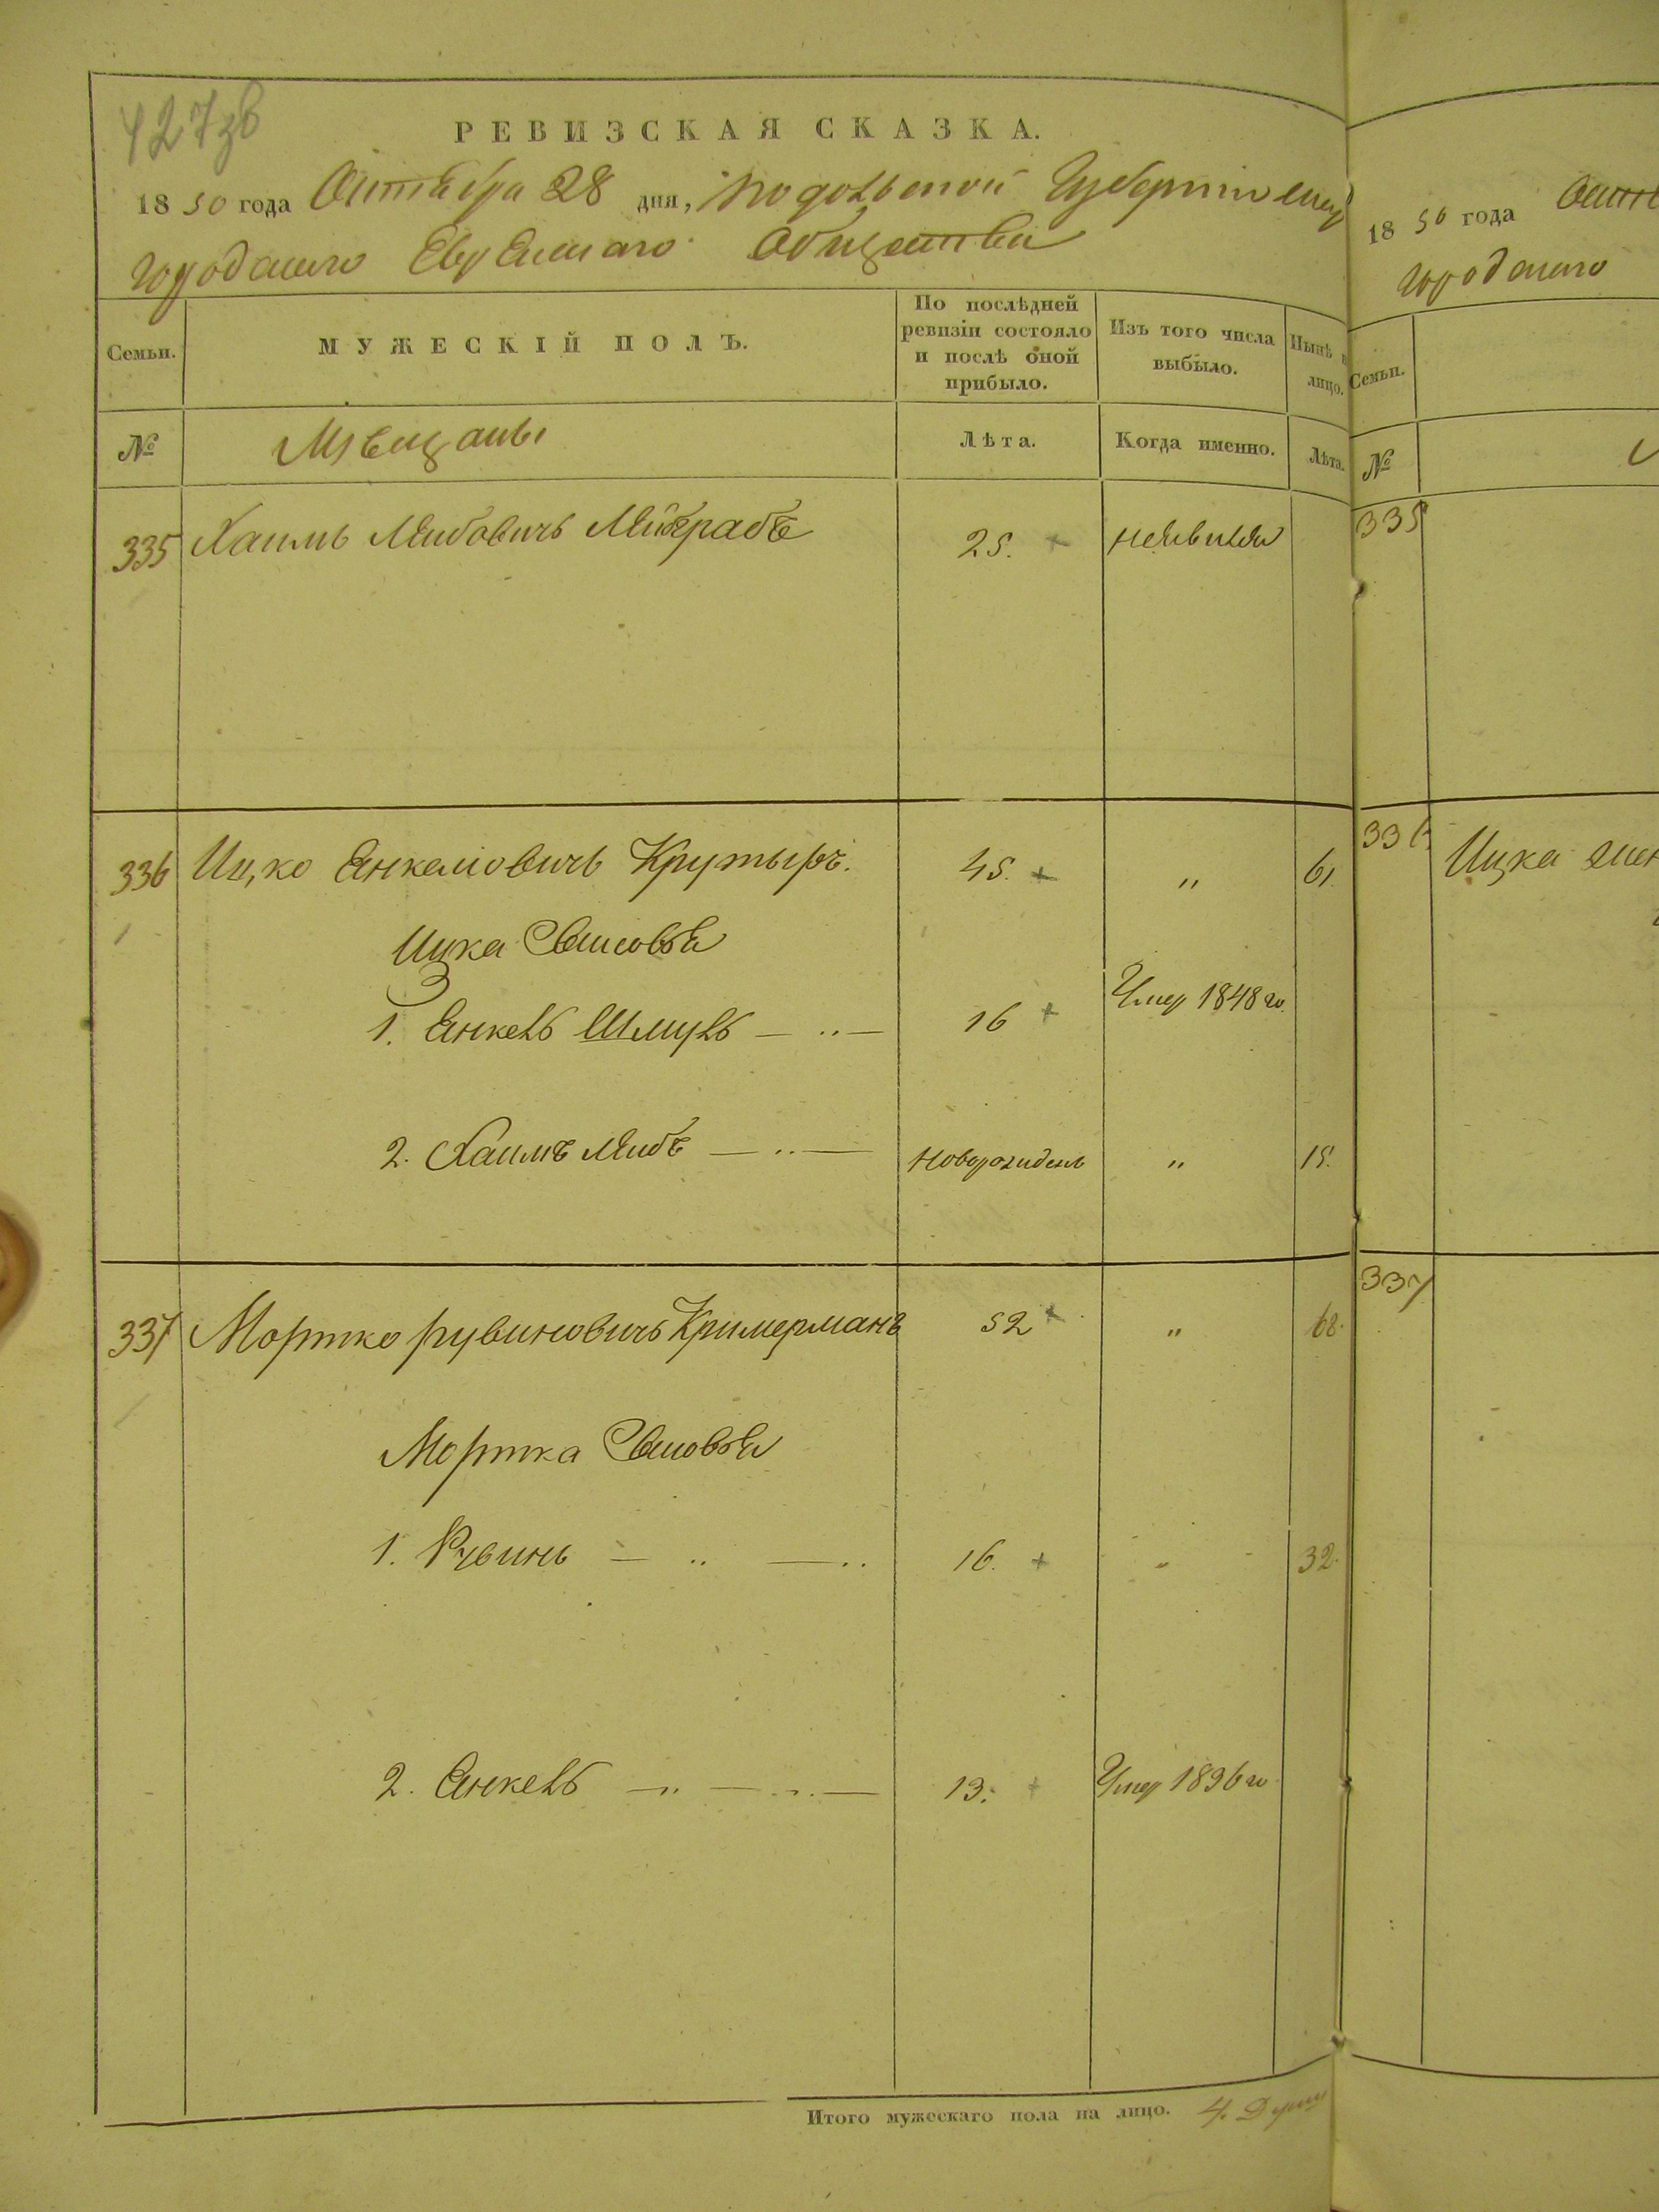 427зв
РЕВИЗСКАЯ СКАЗКА.
1850 года Октября 28 дня, Подольской Губернiи
городскаго Еврейскаго Общества
Семьи.
МУЖЕСКІЙ ПОЛЪ.
По послѣдней ревизіи состояло и послѣ оной прибыло.
Изъ того числа выбыло.
Нынѣ в лицо.
№
Мѣщаны
Лѣта.
Когда именно.
Лѣта.
335 Хаимъ Лейбовичъ 25. + неявился
336 Ицко Янкелiовичъ Крутыръ. 45. + " 61.
Ицка Сыновья
1. Янкель Шмуль — .. — 16 + Умер 1848 го.
2. Хаимъ Лейбъ — .. — Новорожденъ " 15.
337 Мортко рувиновичъ Кримерманъ 52 + " 68.
Мортка Сыновья
1. Рувинъ — .. — .. 16. + " 32.
2. Янкель — .. — .. — 13. + Умер 1836 го
Итого мужескаго пола на лицо. 4. Душ
1850 года
городскаго
Семьи.
№
335
336 Ицка
337